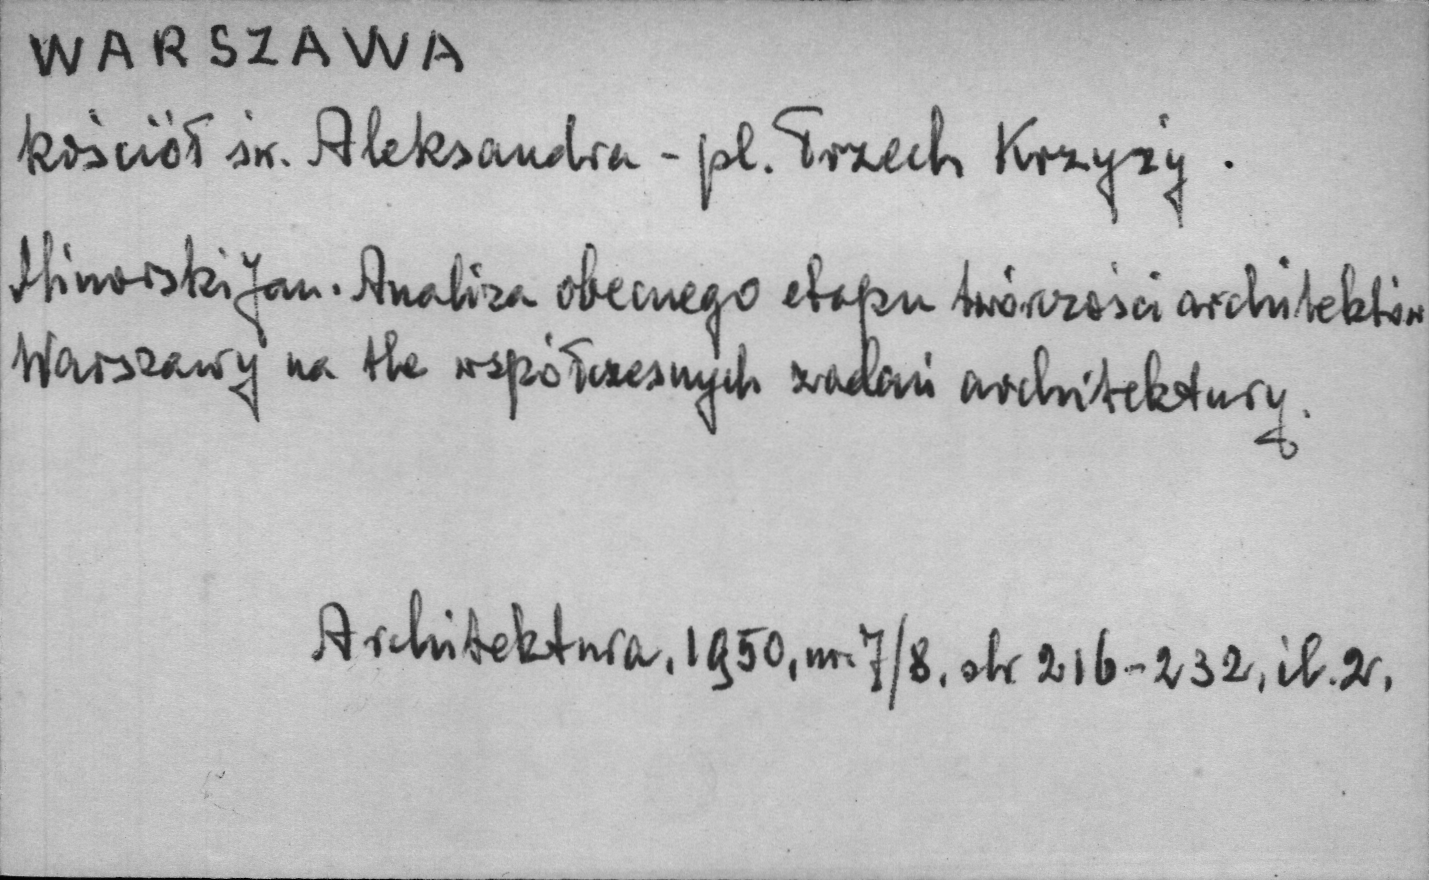 WARSZAWA
kościół św. Aleksandra - pl. Trzech Krzyży.
Minorski Jan. Analiza obecnego etapu twórczości architektów
Warszawy na tle współczesnych zadań architektury.
Architektura, 1950, nr. 7/8, str 216-232, il. 2.